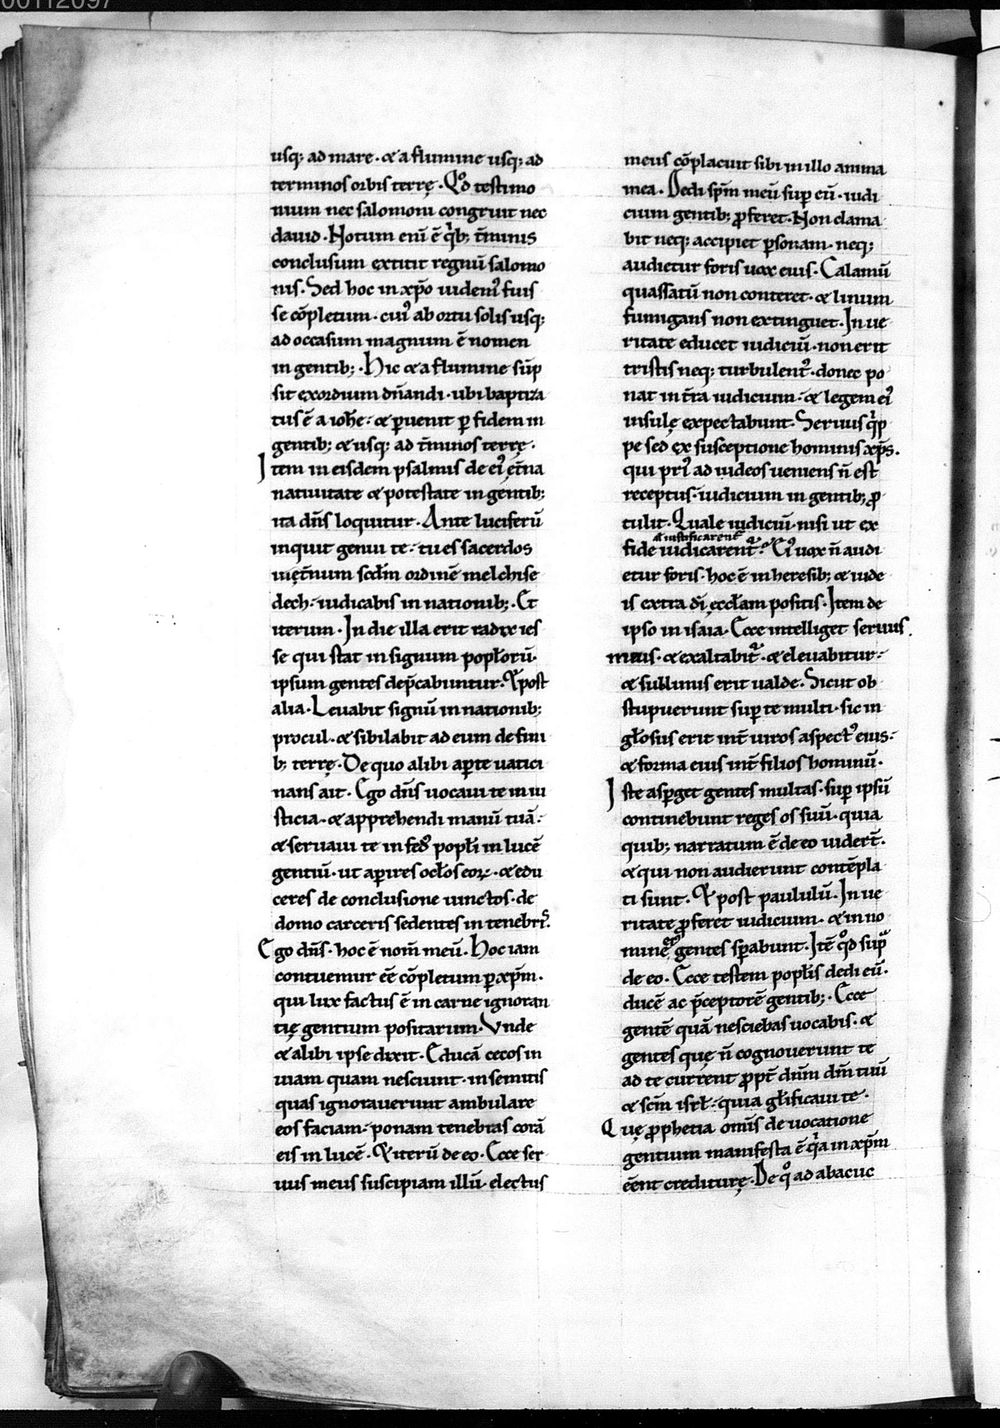 00112097
usq; ad mare · & a flumine usq; ad
terminos orbis terrę · Qd̊ testimo
nium nec salomoni congruit nec
dauid · Notum eni̅ e̅ qⁱb; t̅minis
conclusum extitit regnu̅ salomo
nis · Sed hoc in xp̅o uidemꝰ fuis
se co̅pletum · cuiꝰ ab ortu solis usq;
ad occasum magnum e̅ nomen
in gentib; · Hic & a flumine su̅p
sit exordium dn̅andi · ubi baptiza
tus e̅ a ioh̅e · & puenit p fidem in
gentib; & usq; ad t̅minos terrę ·
Item in eisdem psalmis de eiꝰ et̅na
natiuitate & potestate in gentib;
ita dn̅s loquitur · Ante luciferu̅
inquit genui te · tu es sacerdos
inęt̅num scd̅m ordine̅ melchise
dech · iudicabis in nationib; · Et
iterum · In die illa erit radix ies
se qui stat in signum popl̅oru̅ ·
ipsum gentes dep̅cabuntur · & post
alia · Leuabit signu̅ in nationib;
procul · & sibilabit ad eum de fini
b; terrę · De quo alibi ap̅te uatici
nans ait · Ego dn̅s uocaui te in iu
sticia · & apprehendi manu̅ tua̅ ·
& seruaui te in fed̓ popl̅i in luce̅
gentiu̅ · ut apires ocl̅os eoꝝ · & edu
ceres de conclusione uinctos · de
domo carceris sedentes in tenebrꝭ ·
Ego dn̅s · hoc e̅ nom̅ meu̅ · Hoc iam
contuemur ee̅ co̅pletum p xp̅m ·
qui lux factus e̅ in carne ignoran
tię gentium positarum · Vnde
& alibi ipse dixit · Educa̅ cecos in
uiam quam nesciunt · in semitis
quas ignorauerunt ambulare
eos faciam · ponam tenebras cora̅
eis in luce̅ · & iteru̅ de eo · Ecce ser
uus meus suscipiam illu̅ · electus
meus co̅placuit sibi in illo anima
mea · Dedi sp̅m meu̅ sup eu̅ · iudi
cium gentib; ꝓferet · Non clama
bit neq; accipiet psonam · neq;
audietur foris uox eius · Calamu̅
quassatu̅ non conteret · & linum
fumigans non extinguet · In ue
ritate educet iudiciu̅ · non erit
tristis neq; turbulentꝰ · donec po
nat in t̅ra iudicium · & legem eiꝰ
insulę expectabunt · Seruus qⁱp
pe sed ex susceptione hominis xp̅s ·
qui priꝰ ad iudeos ueniens n̅ est
receptus · iudicium in gentib; ꝓ
tulit · Quale iudiciu̅ · nisi ut ex
ł iustificarent᷑
fide iudicarent᷑ · Eiꝰ uox n̅ audi
etur foris · hoc e̅ in heresib; & iude
is extra di̅ eccl̅am positis · Item de
ipso in isaia · Ecce intelliget seruus
meus · & exaltabit᷑ · & eleuabitur ·
& sublimis erit ualde · Sicut ob
stupuerunt sup te multi · sic in
gl̅osus erit int̅ uiros aspectꝰ eius ·
& forma eius int̅ filios hominu̅ ·
Iste asp̅get gentes multas · sup ipsu̅
continebunt reges os suu̅ · quia
quib; narratum e̅ de eo uidert̅ ·
& qui non audierunt conte̅pla
ti sunt · & post paululu̅ · In ue
ritate ꝓferet iudicium · & in no
mine̅ eiꝰ gentes spabunt · Ite̅ qd̊ sup̲ᵃ
de eo · Ecce testem popl̅is dedi eu̅ ·
duce̅ ac p̅ceptore̅ gentib; · Ecce
gente̅ qua̅ nesciebas uocabis · &
gentes quę n̅ cognouerunt te
ad te current ꝓpt̅ dn̅m dm̅ tuu̅
& scm̅ isrl̅ · quia gl̅ificaui te ·
Quę ꝓphetia omi̅s de uocatione
gentium manifesta e̅ qᵃa in xp̅m
ee̅nt crediturę · De qº ad abacuc